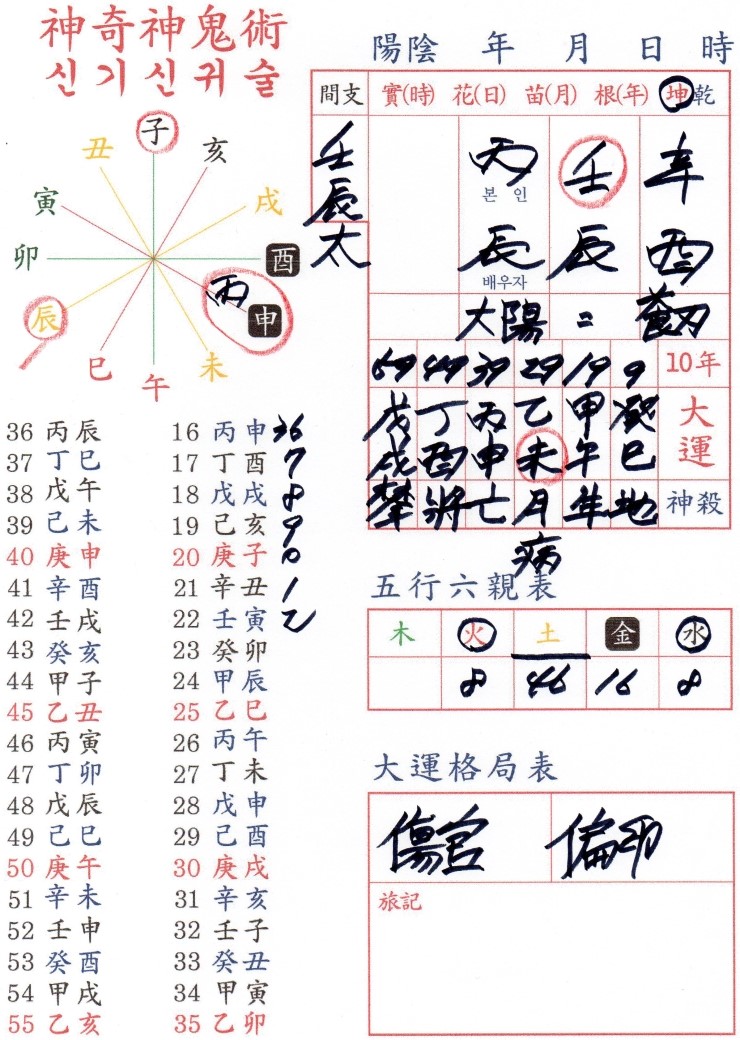 神奇神鬼術
신기신귀술
陽陰 年 月 日 時
間支 實(時) 花(日) 苗(月) 根(年) 坤乾
壬 丙 壬 辛
辰 본인
太 辰 辰 酉
배우자
太陽 =
子
丑 亥
寅 戌
卯 酉
丙
辰 申
巳 未
午
69 49 39 29 19 9 10年
戊 丁 丙 乙 甲 癸 大
戌 酉 申 未 午 巳 運
攀 將 亡 月 年 地 神殺
病
36 丙辰 16 丙申 36
37 丁巳 17 丁酉 7
38 戊午 18 戊戌 8
39 己未 19 己亥 9
40 庚申 20 庚子 0
41 辛酉 21 辛丑 1
42 壬戌 22 壬寅 2
43 癸亥 23 癸卯
44 甲子 24 甲辰
45 乙丑 25 乙巳
46 丙寅 26 丙午
47 丁卯 27 丁未
48 戊辰 28 戊申
49 己巳 29 己酉
50 庚午 30 庚戌
51 辛未 31 辛亥
52 壬申 32 壬子
53 癸酉 33 癸丑
54 甲戌 34 甲寅
55 乙亥 35 乙卯
五行六親表
木 火 土 金 水
8 46 16 8
大運格局表
傷官 偏印
旅記